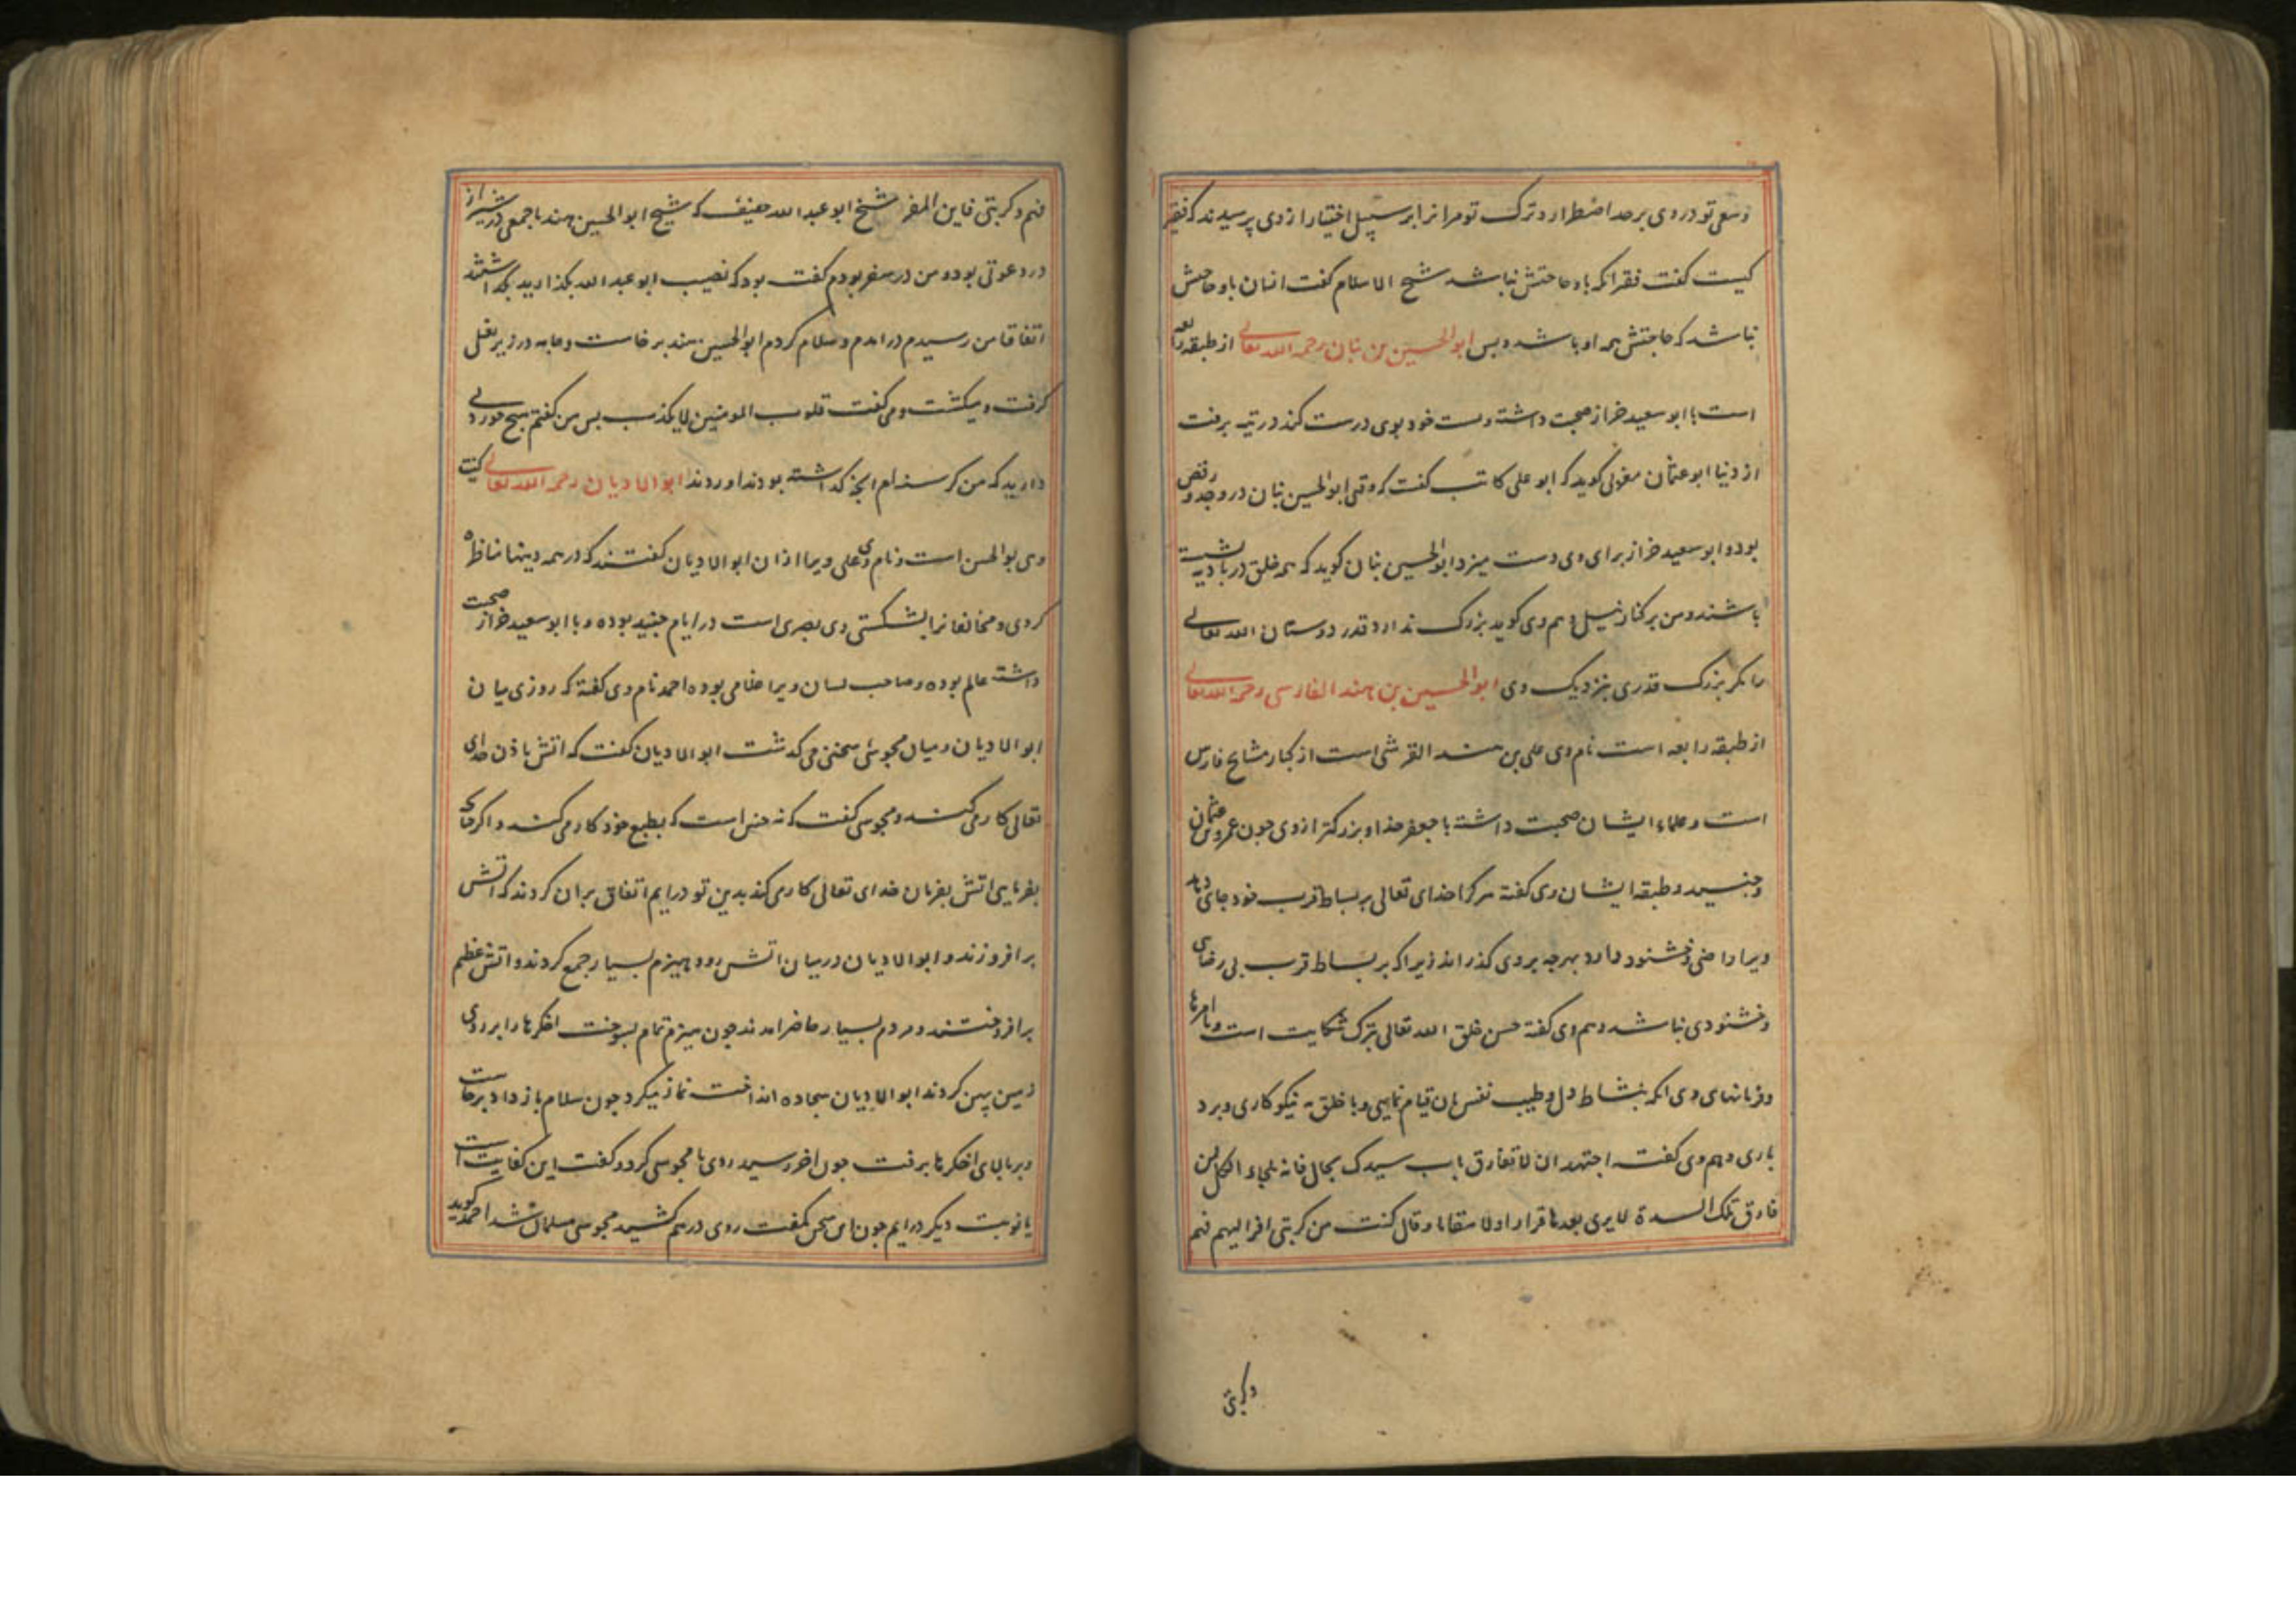 وسعی تو در وی بر حد اضطرار و ترک تو مرانرا بر سبیل اختیار از وی پرسیدند که فقیر
کیست گفت فقیر انکه باو حاجتش نباشد شیخ الاسلام گفت انسان باو حاجتش
نباشد که حاجتش همه او باشد و بس ابو الحسین بن بنان رحمه الله تعالی از طبقه رابعه
است با ابو سعید خراز صحبت داشته و نسبت خود بوی درست کند در تیه برفت
از دنیا ابو عثمان مغربی کوید که ابو علی کاتب گفت که وقتی ابو الحسین بنان در وجد و رقص
بود و ابو سعید خراز برای وی دست میزد ابو الحسین بنان کوید که همه خلق در بادیه تشنه
باشند و من بر کنار نیل و هم وی کوید بزرگ ندارد قدر دوستان الله تعالی
را مکر بزرگ قدری بنزدیک وی ابو الحسین بن هند الفارسی رحمه الله تعالی
از طبقه رابعه است نام وی علی بن هند القرشی است از کبار مشایخ فارس
است و علماء ایشان صحبت داشته با جعفر حذا و بزرکتر از وی جون عمرو عثمان
و جنید و طبقه ایشان وی کفته هر کرا خدای تعالی بر بساط قرب خود جای دهد
ویرا راضی و خشنود دارد بهرجه بر وی کذراند زیرا که بر بساط قرب بی رضای
و خشنودی نباشد و هم وی کفته حسن خلق الله تعالی بترک شکایت است و با امرها
و فرمانهای وی انکه بنشاط دل و طیب نفس بان قیام نمایی و با خلق به نیکو کاری و برد
باری و هم وی کفت اجتهد ان لا تفارق باب سیدک بحال فانه ملجاء الکل فمن
فارق تلک السدة لا یری بعدها قرارا ولا مقاما و قال کنت من کربتی افر الیهم فهم
وکربتی
فهم وکربتی فاین المفر شیخ ابو عبد الله حفیف که شیخ ابو الحسین هند با جمعی در شیراز
در دعوتی بود و من در سفر بودم کفت بود که نصیب ابو عبد الله بکذارید بکذاشتند
اتفاقا من رسیدم در امدم و سلام کردم ابو الحسین هند برخاست و جامه در زیر بغل
کرفت و میکشت و می کفت قلوب المومنین لا یکذب بس من کفتم هیج خوردنی
دارید که من کرسنه ام انجه کذاشته بودند اوردند ابو الادیان رحمه الله تعالی کنیت
وی بو الحسن است و نام وی علی ویرا ازان ابو الادیان کفتند که در همه دینها مناظره
کردی و مخالفانرا بشکستی وی بصری است در ایام جنید بوده و با ابو سعید خراز صحبت
داشته عالم بوده و صاحب لسان ویرا غلامی بوده احمد نام وی کفته که روزی میان
ابو الادیان و میان مجوسی سخنی می کذشت ابو الادیان کفت که اتش باذن خدای
تعالی کار می کند و مجوسی کفت که نه جنین است که بطبع خود کار می کند و اکر جای
بفرمایی اتش بفرمان خدای تعالی کاری کند بدین تو درایم اتفاق بران کردند که اتش
برافروزند و ابو الادیان در میان اتش رود هیزم بسیار جمع کردند و اتش عظیم
برافروختند و مردم بسیار حاضر امدند جون هیزم تمام بسوخت اخکرها را بر روی
زمین پهن کردند ابو الادیان سجاده انداخت نماز میکرد جون سلام باز داد برخاست
و بر بالای اخکرها برفت جون اخر رسید روی با مجوسی کرد و کفت این کفایت است
یا نوبت دیکر درایم جون این سخن بکفت روی در هم کشید مجوسی مسلمان شد احمد کوید